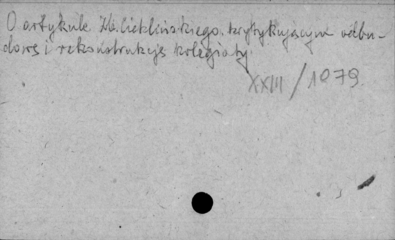 O artykule Wł. Cieklińskiego krytykującym odbu-
dowę i rekonstrukcję kolegiaty
XXIII/1079